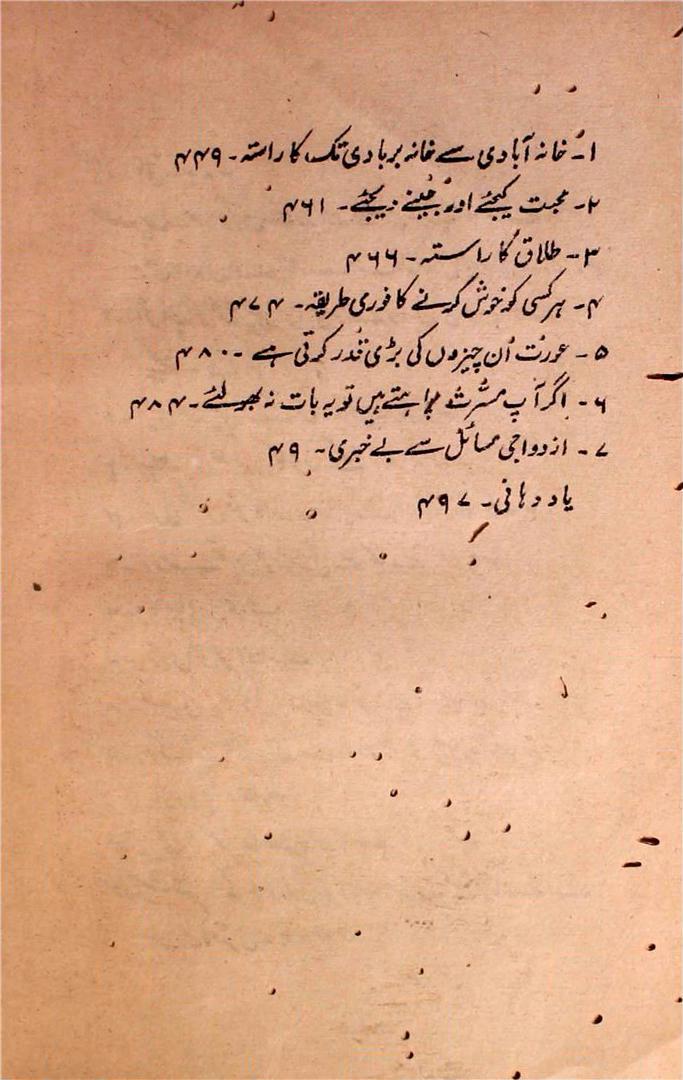 ۱۔ خانہ آبادی سے خانہ بربادی تک کا راستہ۔ ۴۴۹
۲۔ محبت کیجئے اور جینے دیجئے۔ ۴۶۱
۳۔ طلاق کا راستہ۔ ۴۶۶
۴۔ ہر کسی کو خوش کرنے کا فوری طریقہ۔ ۴۷۴
۵۔ عورت اُن چیزوں کی بڑی قدر کرتی ہے۔ ۴۸۰
۶۔ اگر آپ مسّرت چاہتے ہیں تو یہ بات نہ بھولئے۔ ۴۸۴
۷۔ ازدواجی مسائل سے بے خبری۔ ۴۹
یاد دہانی۔ ۴۹۷